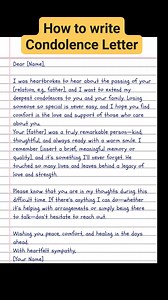 How to write
Condolence Letter
Dear [Name],
I was heartbroken to hear about the passing of your
[relation, e.g., father], and I want to extend my
deepest condolences to you and your family. Losing
someone so special is never easy, and I hope you find
comfort in the love and support of those who care
about you.
Your [father] was a truly remarkable person—kind,
thoughtful, and always ready with a warm smile. I
remember [insert a brief, meaningful memory or
quality], and it's something I'll never forget. He
touched so many lives and leaves behind a legacy of
love and strength.
Please know that you are in my thoughts during this
difficult time. If there's anything I can do—whether
it's helping with arrangements or simply being there
to talk—don't hesitate to reach out.
Wishing you peace, comfort, and healing in the days
ahead.
With heartfelt sympathy,
[Your Name]